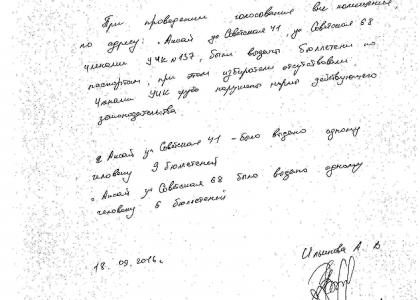 При проведении голосования вне помещения,
по адресу: г Аксай ул Советская 41, ул Советская 68
членами УИК №137, были выданы бюллетени по
паспортам, при этом избиратели отсутствовали.
Членами УИК грубо нарушены нормы действующего
законодательства.
г Аксай ул Советская 41 - было выдано одному
человеку 9 бюллетеней
г. Аксай ул Советская 68 было выдано одному
человеку 6 бюллетеней
18.09.2016г.